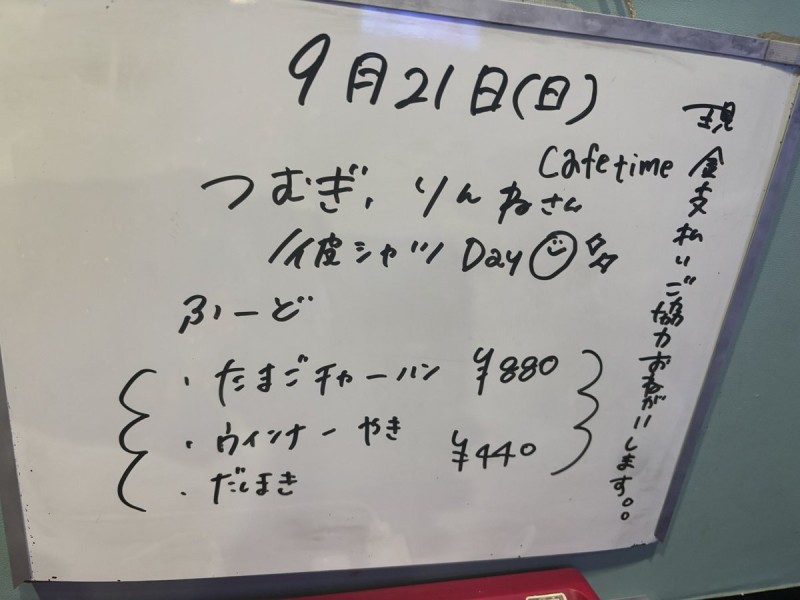 9月21日(日)
Cafetime
つむぎ、りんねさん
彼シャツDay
ふーど
・たまごチャーハン ¥880
・ウインナーやき
¥440
・だしまき
現金支払いご協力おねがいします。。